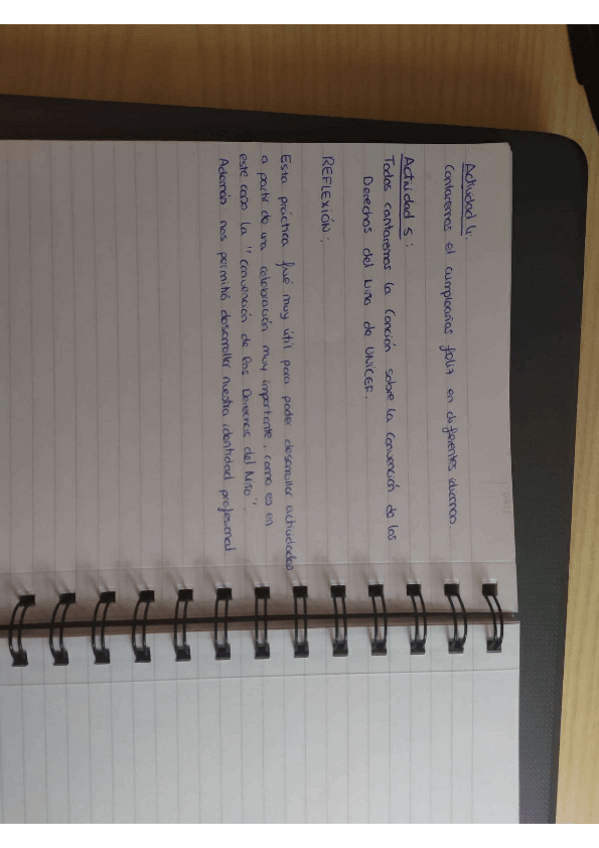 Actividad 4:
Cantaremos el cumpleaños feliz en diferentes idiomas.
Actividad 5:
Todos cantaremos la Canción sobre la Convención de los
Derechos del Niño de UNICEF.
REFLEXIÓN:
Esta práctica fué muy útil para poder desarrollar actividades
a partir de una celebración muy importante, como es en
este caso la "Convención de los Derechos del Niño".
Además nos permitió desarrollar nuestra identidad profesional.